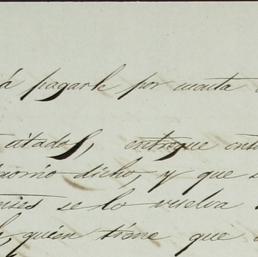 á pagarle por cuenta
atados, entregue
dicho, y que s
se lo vuelva
quien tiene que